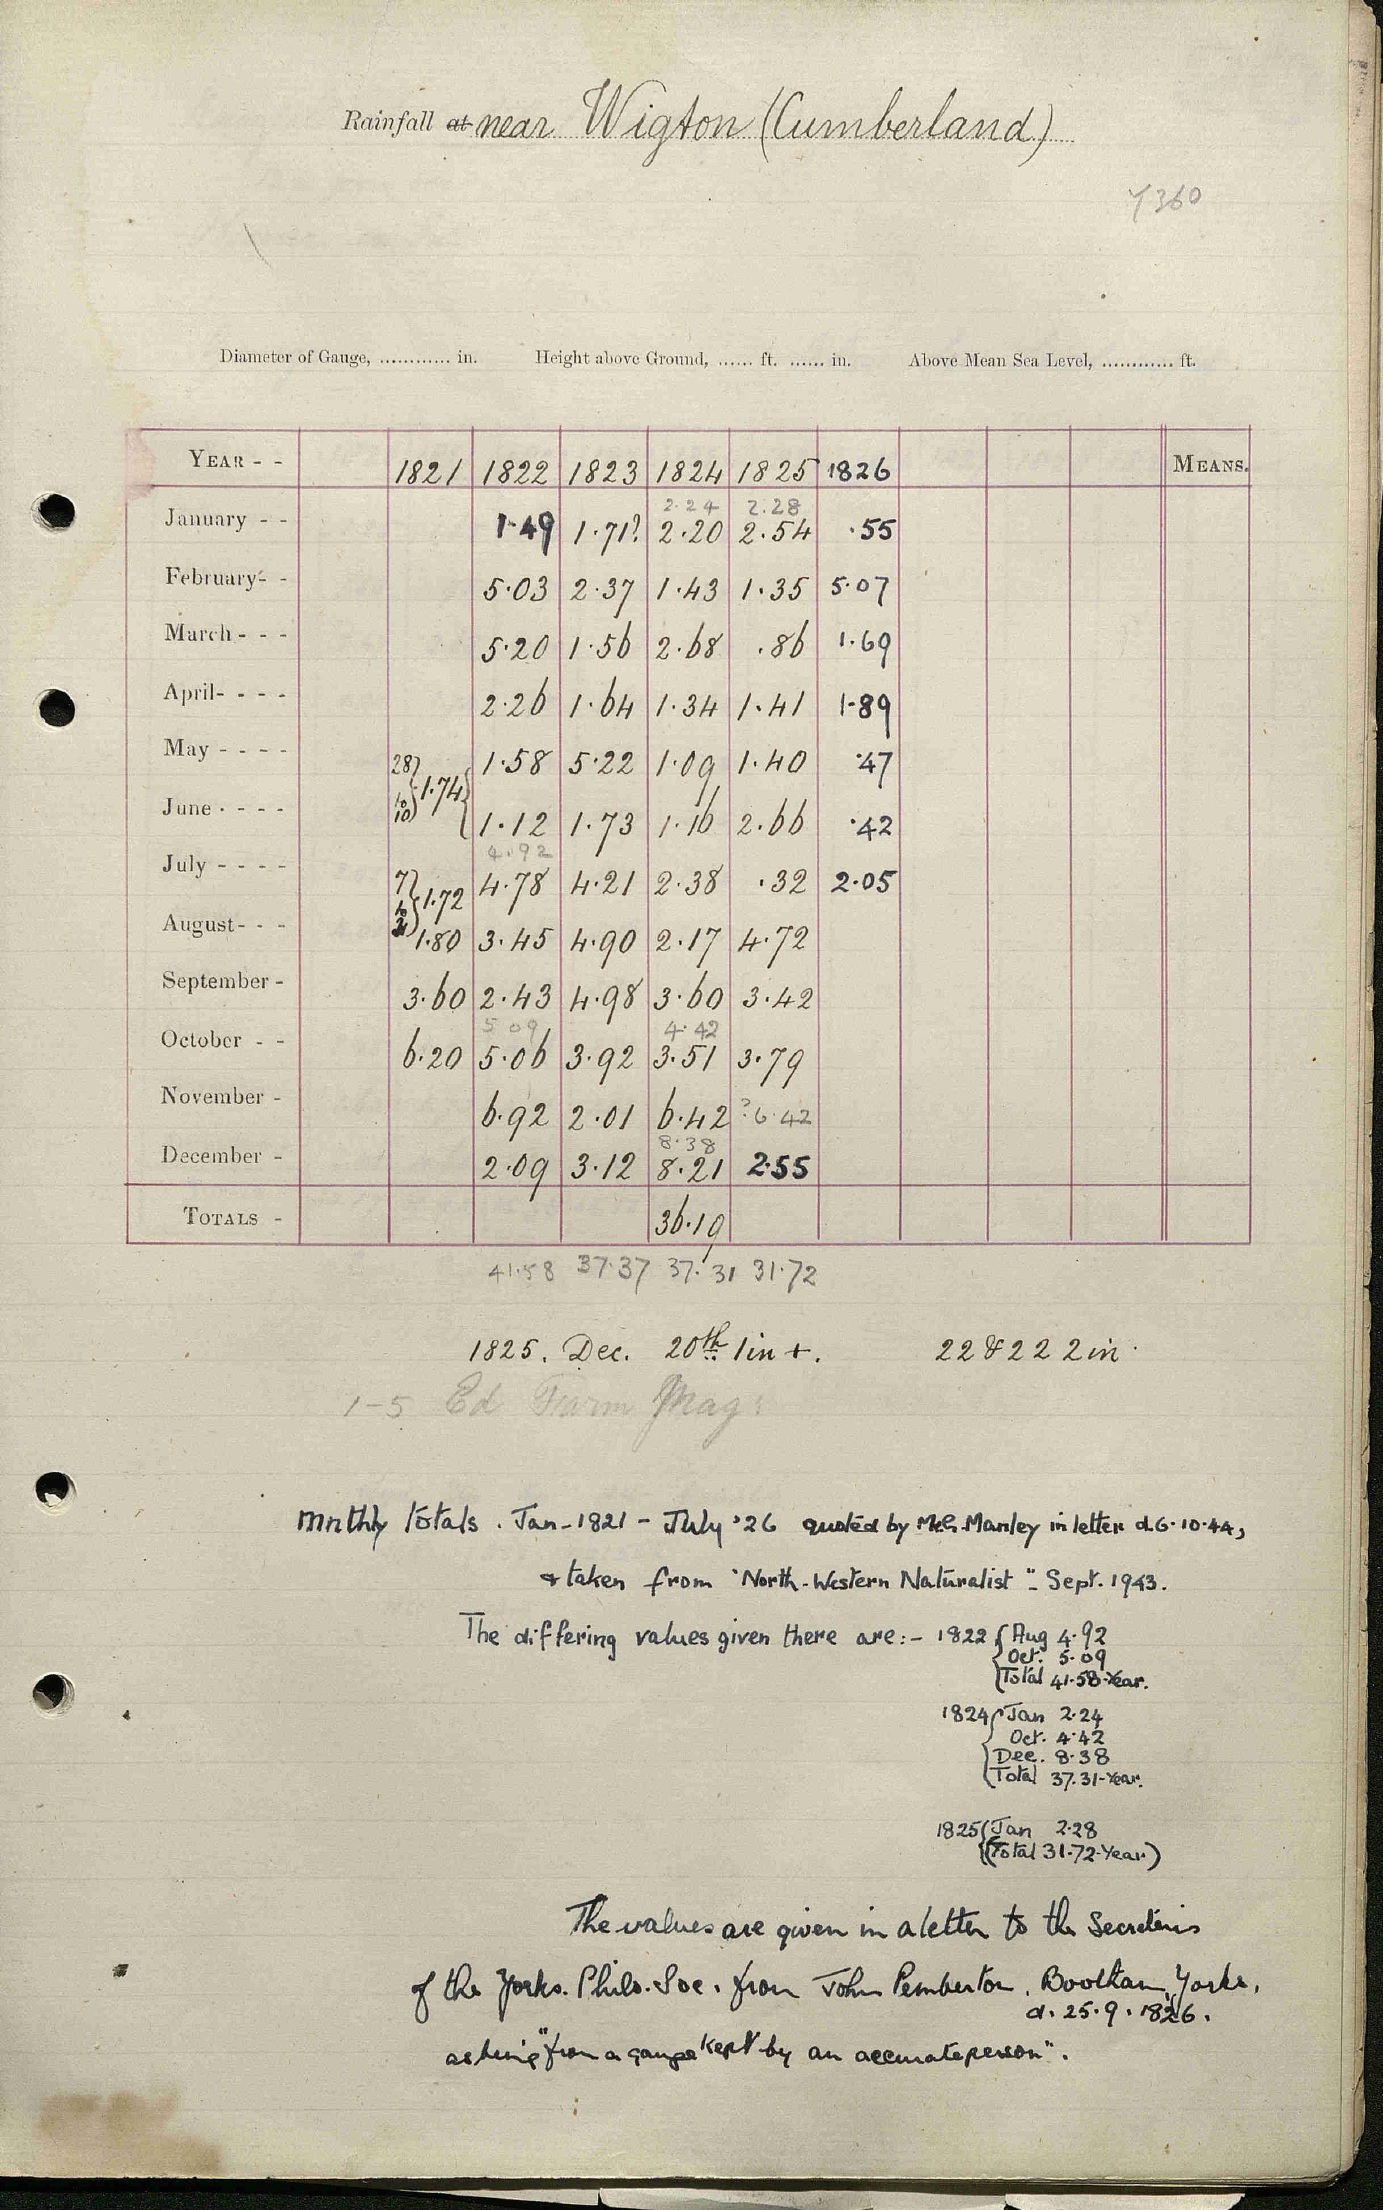 Rainfall at near Wigton (Cumberland)
7360
Diameter of Gauge, ............ in. Height above Ground, ...... ft. ...... in. Above Mean Sea Level, ............ ft.
YEAR - - 1821 1822 1823 1824 1825 1826 MEANS.
2.24 2.28
January - - 1.49 1.71? 2.20 2.54 .55
February - - 5.03 2.37 1.43 1.35 5.07
March - - - 5.20 1.56 2.68 .86 1.69
April - - - - 2.26 1.64 1.34 1.41 1.89
May - - - - 28 1.58 5.22 1.09 1.40 .47
to 10 } 1.74 {
June - - - - 1.12 1.73 1.16 2.66 .42
4.92
July - - - - 7 4.78 4.21 2.38 .32 2.05
to } 1.72
August - - - 1.80 3.45 4.90 2.17 4.72
September - 3.60 2.43 4.98 3.60 3.42
5 09 4.42
October - - 6.20 5.06 3.92 3.51 3.79
November - 6.92 2.01 6.42 ? 6.42
8.38
December - 2.09 3.12 8.21 2.55
TOTALS - 36.19
41.58 37.37 37.31 31.72
1825. Dec. 20th 1in +. 22 & 22 2in.
1-5 Ed Farm Mag:
Mnthly totals . Jan-1821 - July '26 quoted by Mr G. Manley in letter d. 6.10.44,
& taken from "North-Western Naturalist" - Sept. 1943.
The differing values given there are:- 1822 { Aug 4.92
Oct. 5.09
Total 41.58-Year.
1824 { Jan 2.24
Oct. 4.42
Dec. 8.38
Total 37.31-Year.
1825 { Jan 2.28
(Total 31.72-Year)
The values are given in a letter to the Secretaries
of the Yorks. Philo. Soc. from John Pemberton, Bootham, Yorks,
d. 25.9.1826.
as being "from a gauge kept by an accurate person".